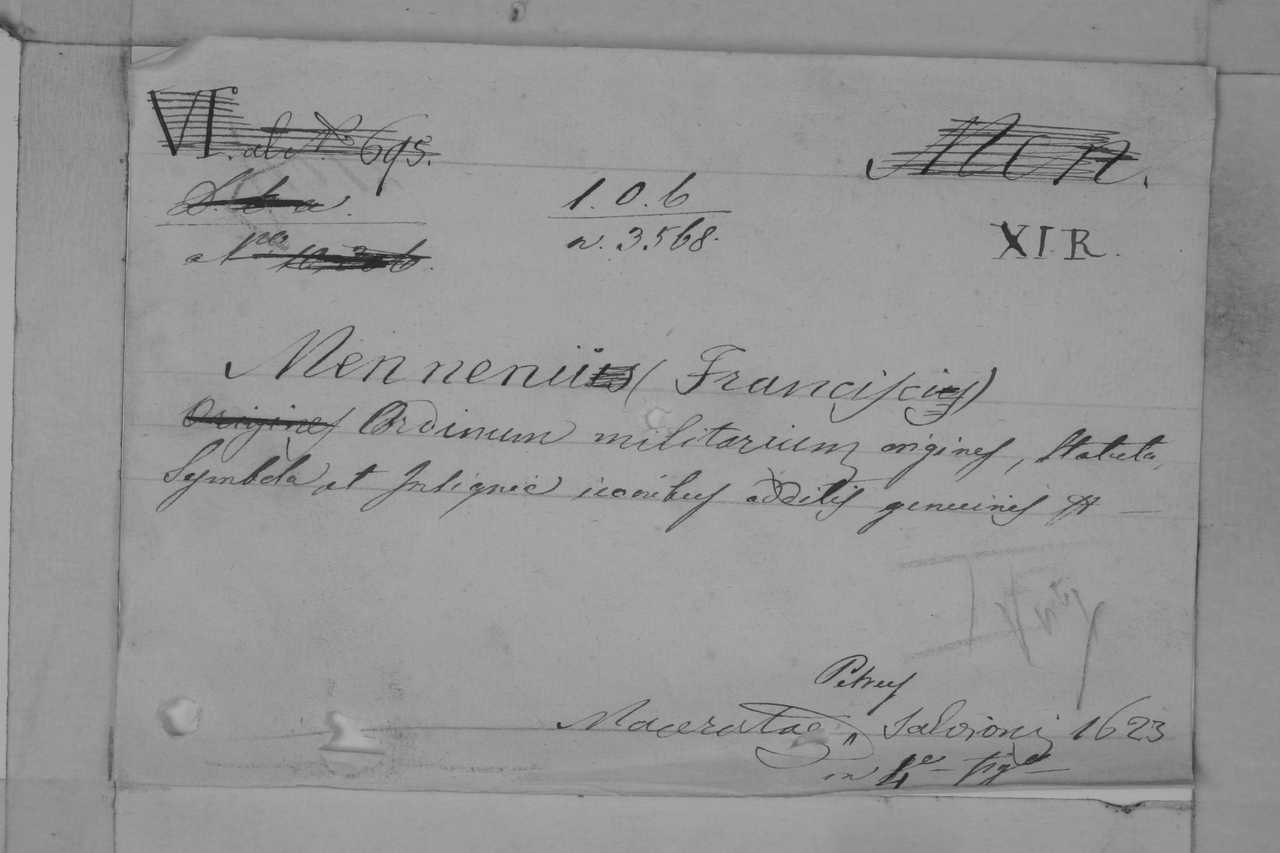 VI. al N.º 695.
Mon.
1. O. 6
n. 3568.
XI. R.
Mennenii (Francisci)
Origines Ordinum militarium origines, Statuta,
Symbola et Insignia iconibus additis genuinis &
Petrus
Maceratae, Salvioni 1623
in 4º fig.